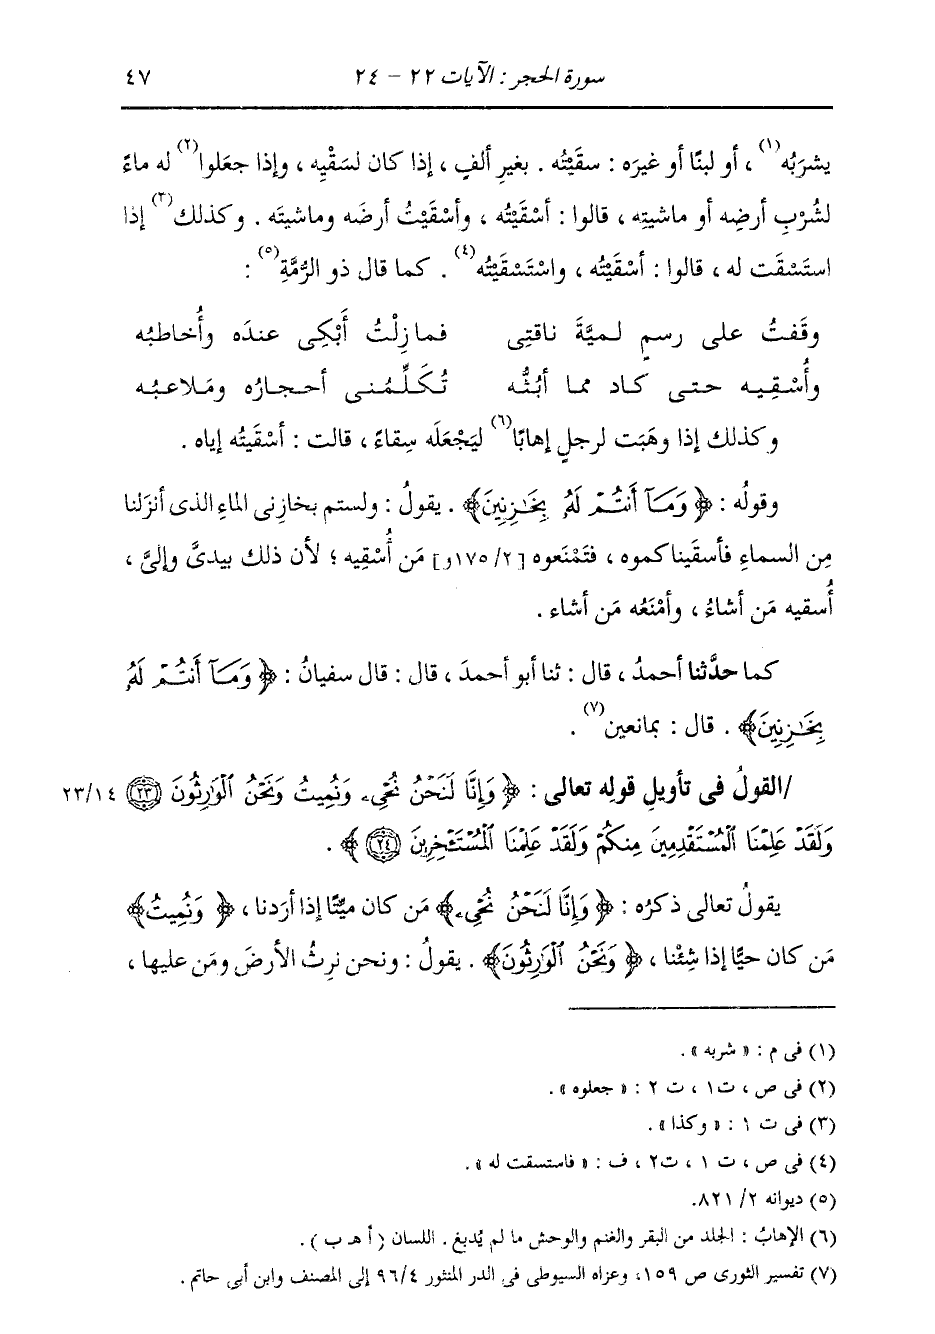 سورة الحجر : الآيات ٢٢ - ٢٤ ٤٧
يشربُه(١) ، أو لبنًا أو غيرَه : سقَيْتُه . بغيرِ ألفٍ ، إذا كان لسَقْيِه ، وإذا جعَلوا(٢) له ماءً
لشُرْبِ أرضِه أو ماشيتِه ، قالوا : أسْقَيْتُه ، وأسْقَيْتُ أرضَه وماشيتَه . وكذلك(٣) إذا
استَسْقَت له ، قالوا : أسْقَيْتُه ، واسْتَسْقَيْتُه(٤) . كما قال ذو الرُّمَّةِ(٥) :
وقَفتُ على رسمٍ لميَّةَ ناقتِى فمازِلْتُ أَبْكِى عندَه وأُخاطبُه
وأُسْقِيه حتى كاد مما أبُثُّه تُكَلِّمُنى أحجارُه ومَلاعبُه
وكذلك إذا وهَبَت لرجلٍ إهابًا(٦) ليَجْعَلَه سِقاءً ، قالت : أسْقَيتُه إياه .
وقولُه : ﴿ وَمَآ أَنتُمْ لَهُۥ بِخَـٰزِنِينَ ﴾ . يقولُ : ولستم بخازِنى الماءِ الذى أنزَلنا
مِن السماءِ فأسقَيناكموه ، فتَمْنَعوه [ ١٧٥/٢و ] مَن أُسْقِيه ؛ لأن ذلك بيدىَّ وإلىَّ ،
أُسقيه مَن أشاءُ ، وأمْنَعُه مَن أشاء .
كما حدَّثنا أحمدُ ، قال : ثنا أبو أحمدَ ، قال : قال سفيانُ : ﴿ وَمَآ أَنتُمْ لَهُۥ
بِخَـٰزِنِينَ ﴾ . قال : بمانعين(٧) .
/القولُ فى تأويلِ قولِه تعالى : ﴿ وَإِنَّا لَنَحْنُ نُحْيِۦ وَنُمِيتُ وَنَحْنُ ٱلْوَٰرِثُونَ ٢٣ ٢٣/١٤
وَلَقَدْ عَلِمْنَا ٱلْمُسْتَقْدِمِينَ مِنكُمْ وَلَقَدْ عَلِمْنَا ٱلْمُسْتَـْٔخِرِينَ ٢٤ ﴾ .
يقولُ تعالى ذكرُه : ﴿ وَإِنَّا لَنَحْنُ نُحْيِۦ ﴾ مَن كان ميِّتًا إذا أردنا ، ﴿ وَنُمِيتُ ﴾
مَن كان حيًّا إذا شِئْنا ، ﴿ وَنَحْنُ ٱلْوَٰرِثُونَ ﴾ . يقولُ : ونحن نرِثُ الأرضَ ومَن عليها ،
(١) فى م : « شربه » .
(٢) فى ص ، ت١ ، ت ٢ : « جعلوه » .
(٣) فى ت ١ : « وكذا » .
(٤) فى ص ، ت ١ ، ت٢ ، ف : « فاستسقت له » .
(٥) ديوانه ٢/ ٨٢١.
(٦) الإهابُ : الجلد من البقر والغنم والوحش ما لم يُدبغ . اللسان ( أ هـ ب ) .
(٧) تفسير الثورى ص ١٥٩، وعزاه السيوطى فى الدر المنثور ٩٦/٤ إلى المصنف وابن أبى حاتم .